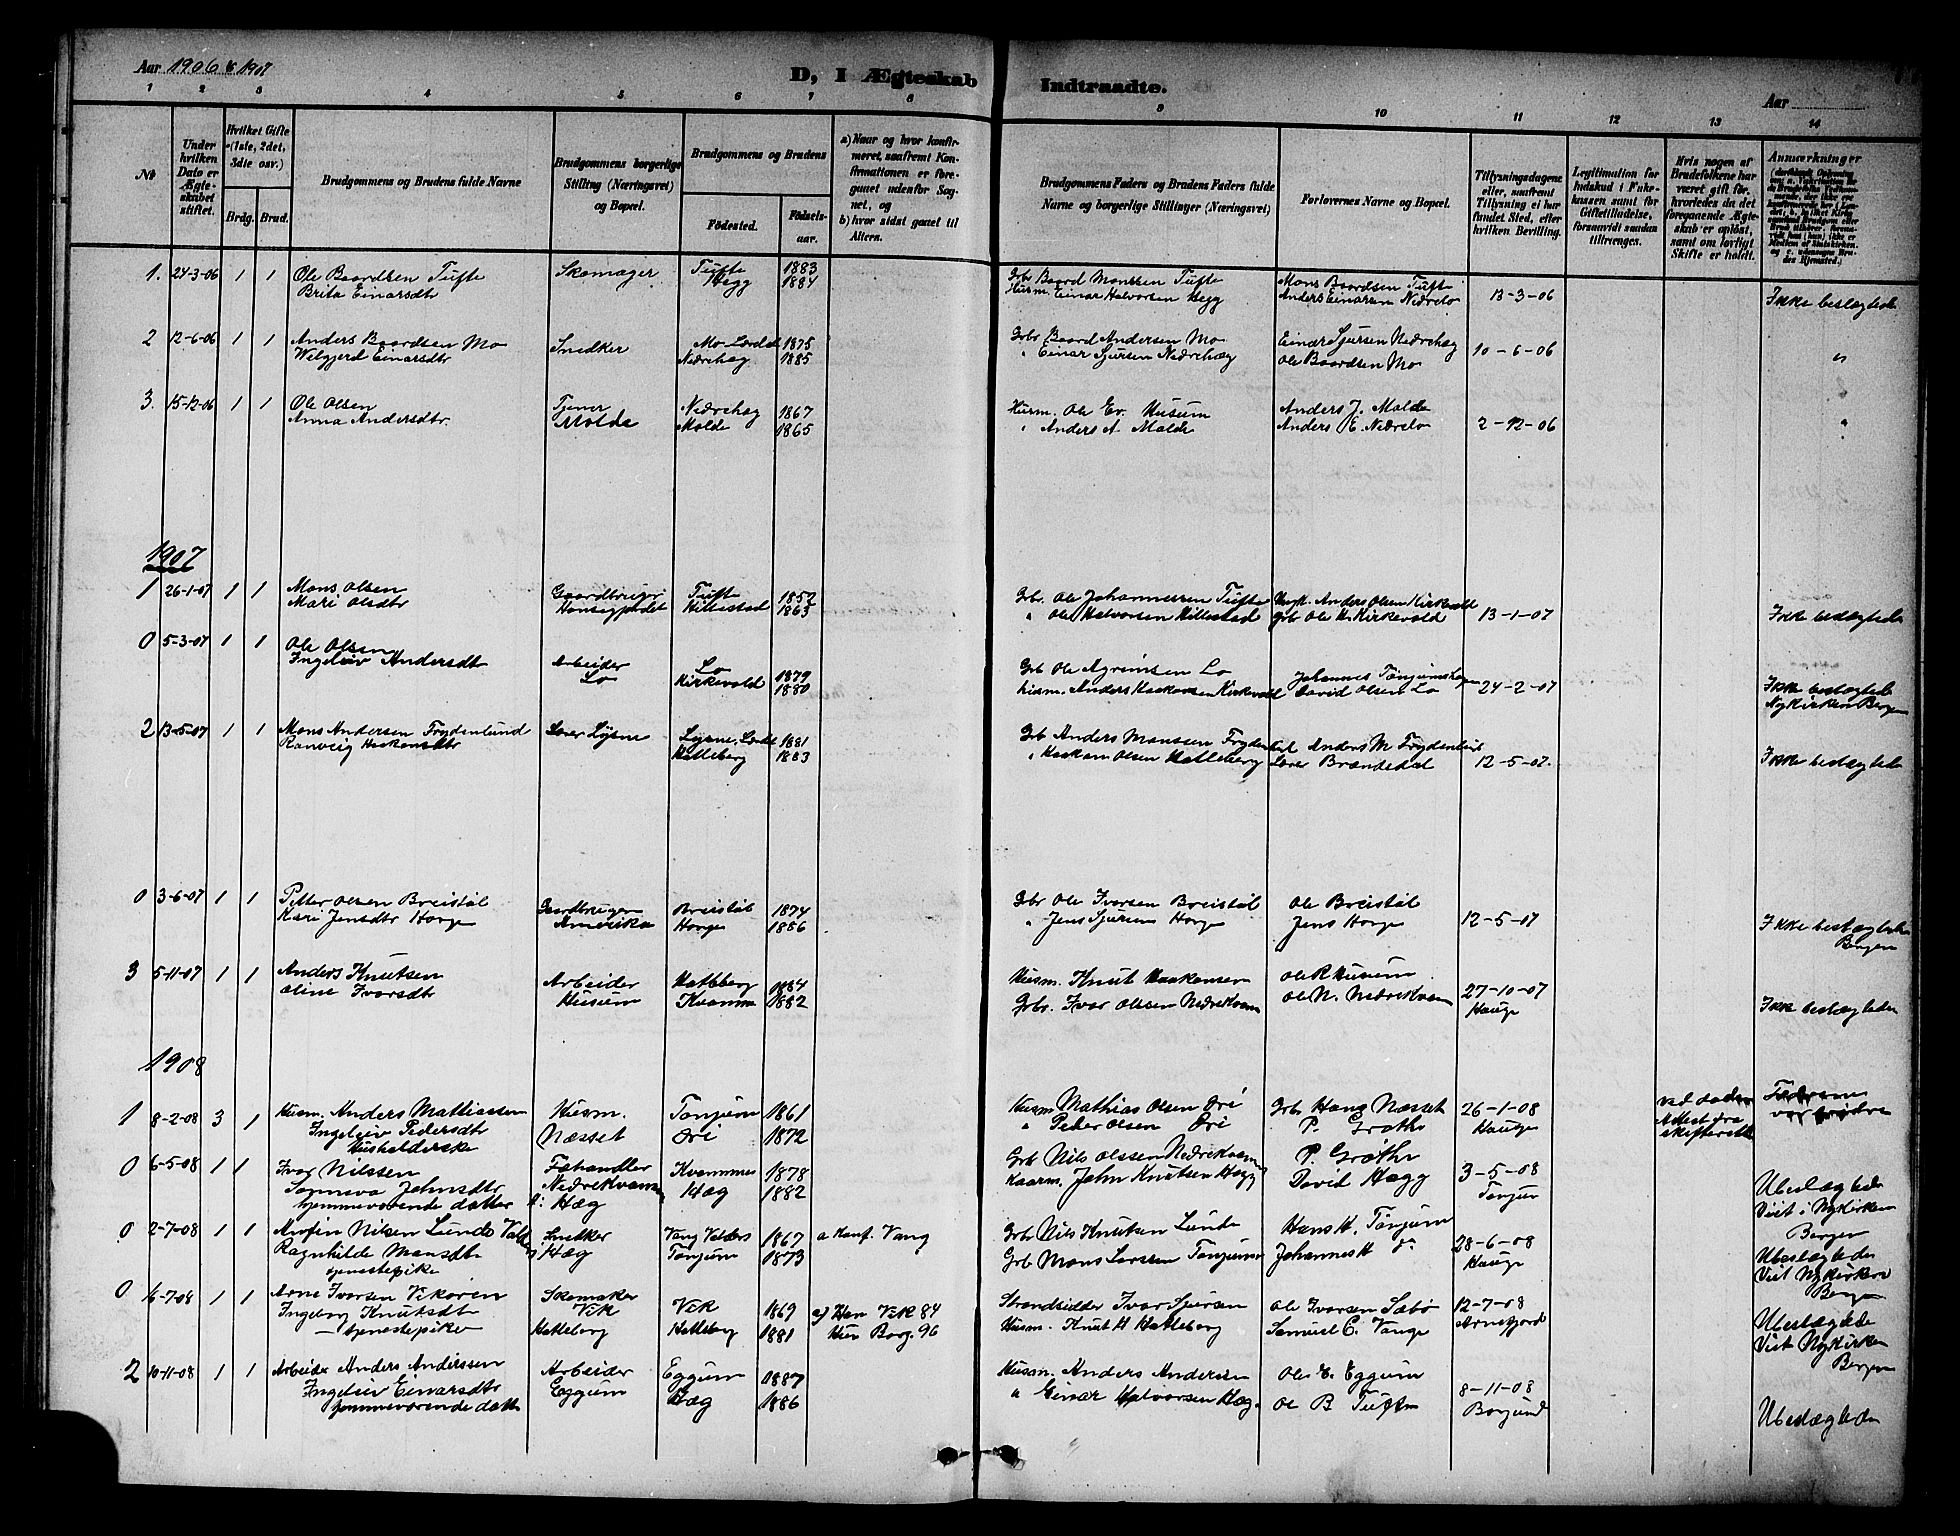 Aar 1906 & 1907
D, I Ægteskab Indtraadte.
Aar
1 2 3 4 5 6 7 8 9 10 11 12 13 14
No
Under hvilken Dato er Ægteskabet stiftet.
Hvilket Gifte (1ste, 2det, 3die osv.)
Brdg. Brud.
Brudgommens og Brudens fulde Navne
Brudgommens borgerlige Stilling (Næringsvei) og Bopæl.
Brudgommens og Brudens
Födested. Födselsaar.
a) Naar og hvor konfirmeret, saafremt Konfirmationen er foregaaet udenfor Sognet, og
b) hvor sidst gaaet til Alters.
Brudgommens Faders og Brudens Faders fulde Navne og borgerlige Stillinger (Næringsvei)
Forlovernes Navne og Bopæl.
Tillysningsdagene eller, saafremt Tillysning ei har fundet Sted, efter hvilken Bevilling.
Legitimation for Indskud i Enkekassen samt for Giftetilladelse, forsaavidt saadan tiltrænges.
Hvis nogen af Brudefolkene har været gift før, hvorledes da det foregaaende Ægteskab er opløst, samt om lovligt Skifte er holdt.
Anmærkninger
1. 24-3-06 1 1 Ole Baardsen Tufte Skomager Tufte 1883 Grb Baard Monssen Tufte Mons Baardsen Tufte 13-3-06 Ikke beslægtede
Brita Einarsdtr Hegg 1884 Husm. Einar Halvorsen Hegg Anders Einarsen Nedrelo
2 12-6-06 1 1 Anders Baardsen Mo Snedker Mo Lærdal 1875 Grb. Baard Andersen Mo Einar Sjursen Nedrehæg 10-6-06 "
Wibjerd Einarsdtr Nedrehæg 1885 " Einar Sjursen Nedrehæg Ole Baardsen Mo
3. 15-12-06 1 1 Ole Olsen Tjener Nedrehæg 1867 Husm. Ole Ev. Husum Anders J. Molde 2-12-06 "
Anna Andersdtr. Molde Molde 1865 " Anders A. Molde Anders E. Nedrelo
1907
1 26-1-07 1 1 Mons Olsen Gaardbruger Tufte 1852 Grb. Ole Johannessen Tufte Anders Olsen Kirkevold 13-1-07 Ikke beslægtede
Mari Olsdtr Hillestad 1863 " Ole Halvorsen Hillestad Grb Ole H. Kirkevold
0 5-3-07 1 1 Ole Olsen Arbeider Lo 1879 Grb Ole Agrimsen Lo Johannes Tønjumshagen 24-2-07 Ikke beslægtede
Ingeleiv Andersdtr Lo Kirkevold 1880 Husm. Anders Haakonsen Kirkevold David Olsen Lo Nykirken Bergen
2 13-5-07 1 1 Mons Andersen Frydenlund Lærer Lysne Lysne, Lærdal 1881 Grb Anders Monssen Frydenlund Anders M Frydenlund 12-5-07. Ikke beslægtede
Ranveig Haakonsdtr Hatleberg 1883 " Haakon Olsen Hatleberg Lærer Brændedal
0 3-6-07 1 1 Petter Olsen Breistøl Gaardbruger Breistøl 1874 Grb Ole Ivarsen Breistøl Ole Breistøl 12-5-07 Ikke beslægtede
Kari Jensdtr Horge Amerika Horge 1886 " Jens Sjursen Horge Jens Horge Bergen
3 5-11-07 1 1 Anders Knutsen Arbeider Hatleberg 1884 Husm. Knut Haakonsen Ole R Husum 27-10-07 Ikke beslægtede
Oline Ivarsdtr Husum Kvamme 1882 Grb. Ivar Olssen Nedrekvam Ole N. Nedrekvam Hauge
1908
1 8-2-08 3 1 Husm. Anders Mathiassen Husm. Tønjum 1861 Husm Mathias Olsen Øri Grb Hans Næsset 26-1-08 ved døden Fædrene
Ingeleiv Pedersdtr Næsset Øri 1872 " Peter Olsen Øri P. Grøthe Hauge Attest fra skifteretten var brødre
Husholderske
0 6-5-08 1 1 Ivar Nilssen Fæhandler Kvamme 1878 Grb Nils Olssen Nedrekvamme P. Grøthe 3-5-08 Ubeslægtede
Johnsdtr Nedrekvamme Hæg 1882 Kaarm. John Knutsen Hægg David Hægg Tønjum Viet i Nykirken Bergen
hjemmeværende datter B: Hæg
0 2-7-08 1 1 Andfin Nilsen Lunde Valdres Snekker Vang Valdres 1867 a Konf. Vang Grb Nils Knutsen Lunde Hans H. Tønjum 28-6-08 Ubeslægtede
Ragnhilde Monsdtr Hæg Tønjum 1873 Grb Mons Larssen Tønjum Johannes H do Hauge Viet Nykirken Bergen
tjenestepike
0 6-7-08 1 1 Arne Ivarsen Vikøren Skomaker Vik 1869 a) Han Vik 84 Strandsidder Ivar Sjursen Ole Ivarsen Sæbø 12-7-08 Ubeslægtede
Ingeborg Knutsdtr Vik Hatleberg 1881 Hun Borg. 96 Husm. Knut H Hatleberg Samuel E. Vange Arnefjord Viet Nykirken Bergen
tjenestepike Hatleberg
2 10-11-08 1 1 Arbeider Anders Anderssen Arbeider Eggum 1887 Husm. Anders Andersen Ole E. Eggum 8-11-08 Ubeslægtede
Ingeleiv Einarsdtr Eggum Hæg 1886 " Einar Halvorsen Hæg. Ole B Tufte Borgund
hjemmeværende datter